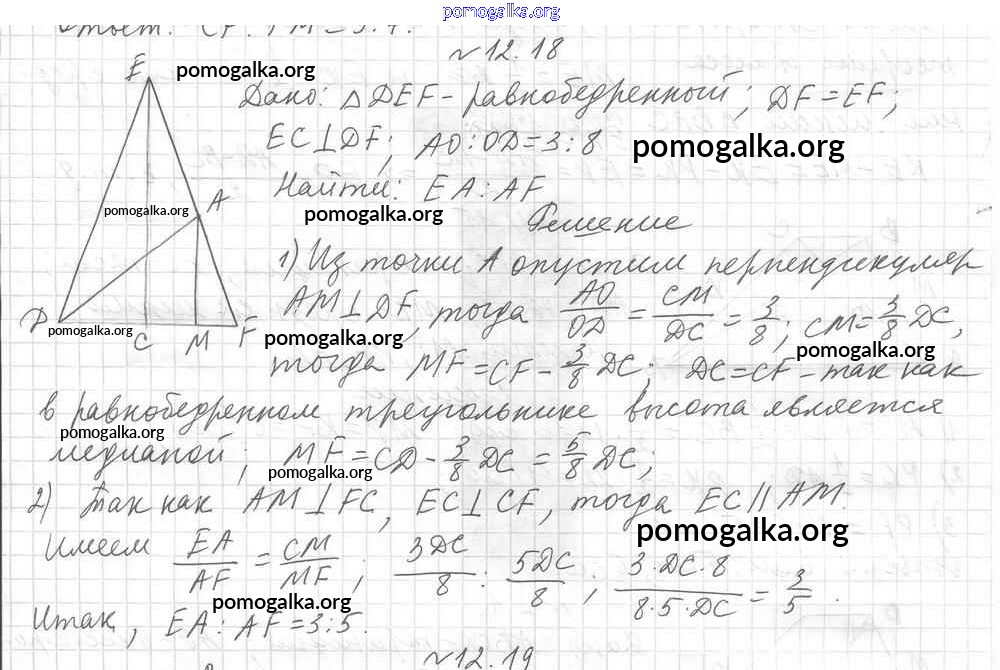 pomogalka.org
Ответ: CF : FM = 3:4.
№12.18
E
pomogalka.org
Дано: △DEF - равнобедренный; DF = EF;
EC⊥DF; AO:OD=3:8
pomogalka.org
Найти: EA:AF
pomogalka.org
A
pomogalka.org
Решение
1) Из точки A опустим перпендикуляр
AM⊥DF, тогда AO/OD = CM/DC = 3/8; CM = 3/8 DC,
D
pomogalka.org
C
M
F
pomogalka.org
pomogalka.org
тогда MF = CF - 3/8 DC; DC = CF - так как
в равнобедренном треугольнике высота является
pomogalka.org
медианой; MF = CD - 3/8 DC = 5/8 DC;
pomogalka.org
2) Так как AM⊥FC, EC⊥CF, тогда EC||AM.
pomogalka.org
Имеем EA/AF = CM/MF; 3DC/8 : 5DC/8; 3·DC·8/8·5·DC = 3/5.
pomogalka.org
Итак, EA:AF=3:5.
№12.19